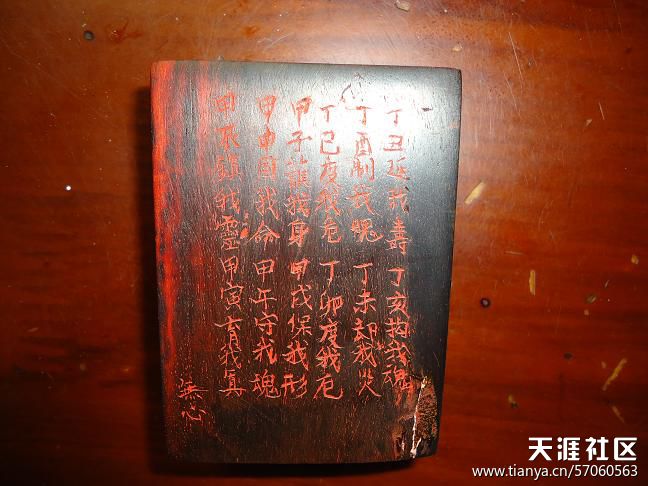 丁丑延我壽丁亥拘我魂
丁酉制我魄丁未却我災
丁巳度我危丁卯度我厄
甲子護我身甲戌保我形
甲申固我命甲午守我魂
甲辰鎮我靈甲寅育我真
無心
天涯社区
www.tianya.cn/57060563